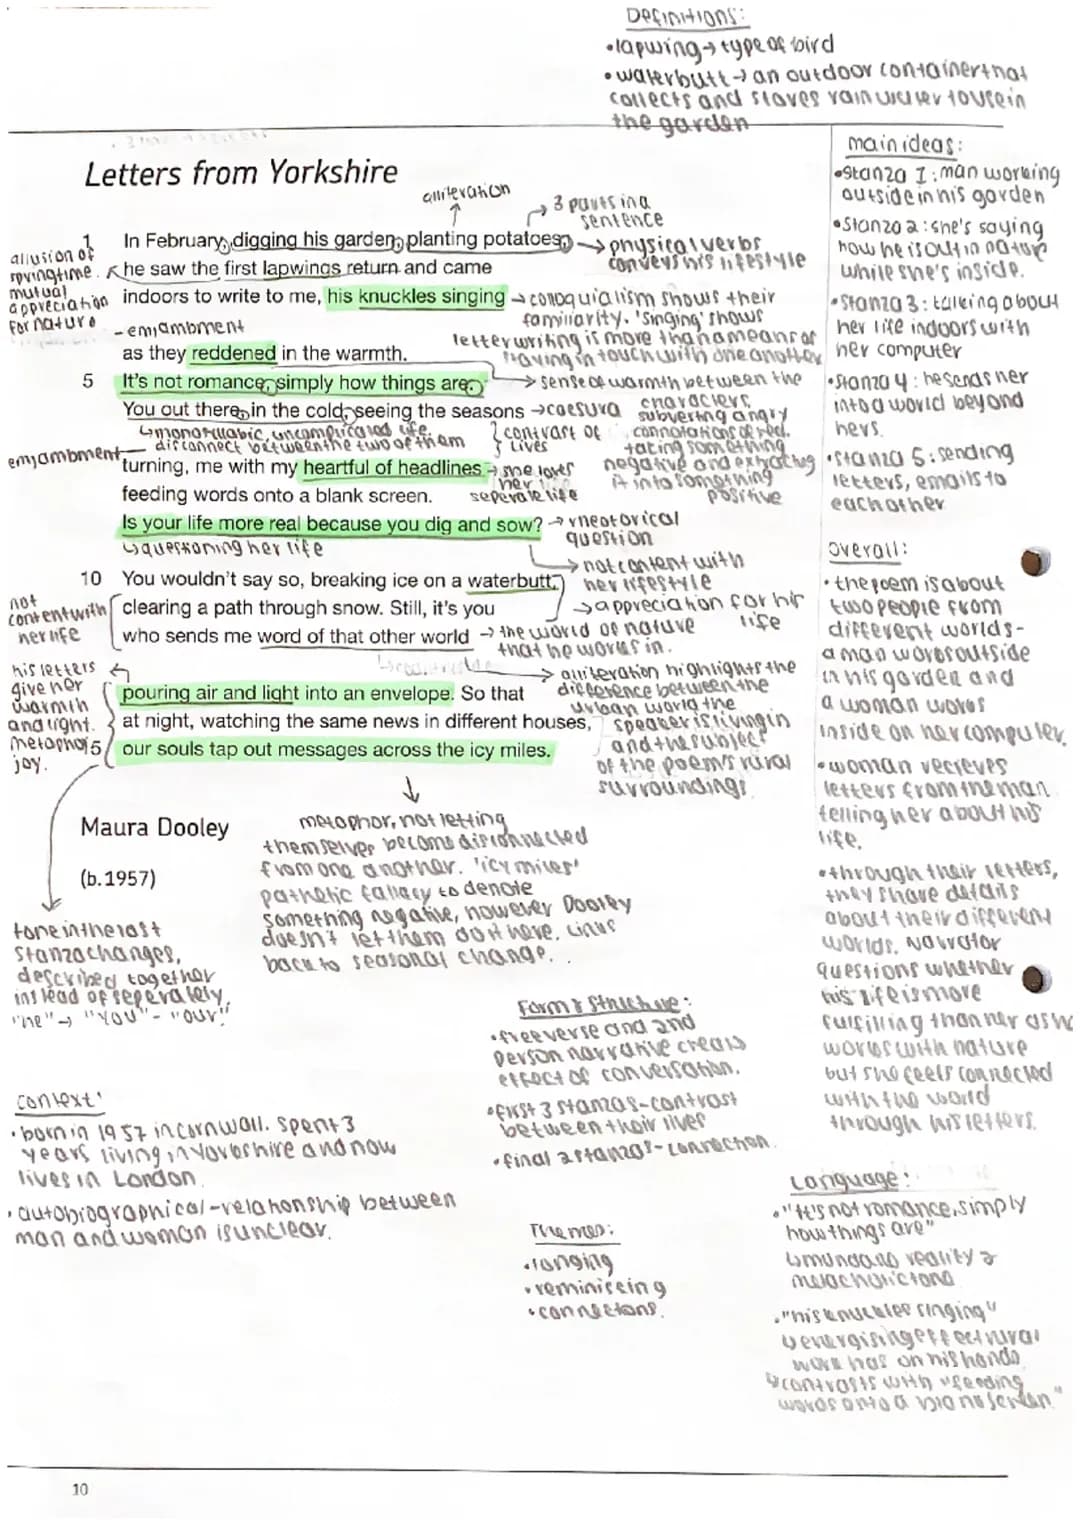 Definitions:
•lapwing→ type of bird
•waterbutt→ an outdoor container that
collects and stores rainwater to use in
the garden
Letters from Yorkshire
alliteration
→ 3 parts in a
sentence
1 In February, digging his garden, planting potatoes,
→ physical verbs
conveys his lifestyle
allusion of
springtime.
mutual
appreciation
for nature
he saw the first lapwings return and came
indoors to write to me, his knuckles singing
→ colloquialism shows their
familiarity. 'singing' shows
letter writing is more than a means of
having in touch with one another
-enjambment
as they reddened in the warmth.
5 It's not romance, simply how things are.
→ sense of warmth between the
characters,
subverting angry
connotations of red.
taking something
negative and extracting
it into something
positive
You out there, in the cold, seeing the seasons
→caesura
↳monosyllabic, uncomplicated life.
disconnect between the two of them
contrast of
lives
enjambment
turning, me with my heartful of headlines
→ she loves
her life
seperate life
feeding words onto a blank screen.
Is your life more real because you dig and sow?
→ rhetorical
question
↳questioning her life
→ not content with
her lifestyle
10 You wouldn't say so, breaking ice on a waterbutt,
→appreciation for his
life
not
content with
her life
clearing a path through snow. Still, it's you
who sends me word of that other world
→ the world of nature
that he works in.
his letters
give her
warmth
and light.
metaphor
joy.
→ alliteration highlights the
difference between the
urban world the
speaker is living in
and the subject
of the poem's rural
surroundings
pouring air and light into an envelope. So that
at night, watching the same news in different houses,
15 our souls tap out messages across the icy miles.
Maura Dooley
(b.1957)
metaphor, not letting
themselves become disconnected
from one another. 'icy miles'
pathetic fallacy to denote
something negative, however Dooley
doesn't let them do it here. Links
back to seasonal change.
tone in the last
stanza changes,
described together
instead of seperately.
"he"→ "you"- "our"
main ideas:
•Stanza 1: man working
outside in his garden
•Stanza 2: she's saying
how he is out in nature
while she's inside.
•Stanza 3: talking about
her life indoors with
her computer
•Stanza 4: he sends her
into a world beyond
hers.
•Stanza 5: sending
letters, emails to
each other
Overall:
•the poem is about
two people from
different worlds-
a man works outside
in his garden and
a woman works
inside on her computer.
•woman recieves
letters from the man
telling her about his
life.
•through their letters,
they share details
about their different
worlds. Narrator
questions whether
his life is more
fulfilling than her as he
works with nature
but she feels connected
with the world
through his letters.
Form & Structure:
•free verse and 2nd
person narrative creats
effect of conversation.
•first 3 stanzas-contrast
between their lives
•final 2 stanzas-connection.
Context:
•born in 1957 in Cornwall. Spent 3
years living in Yorkshire and now
lives in London.
•autobiographical-relationship between
man and woman is unclear.
Themes:
•longing
•reminiscing
•connections.
Language:
•"It's not romance, simply
how things are"
↳mundane reality &
melacholic tone
•"his knuckles singing"
↳energising effect rural
work has on his hands
↳contrasts with "feeding
words onto a blank screen."
10